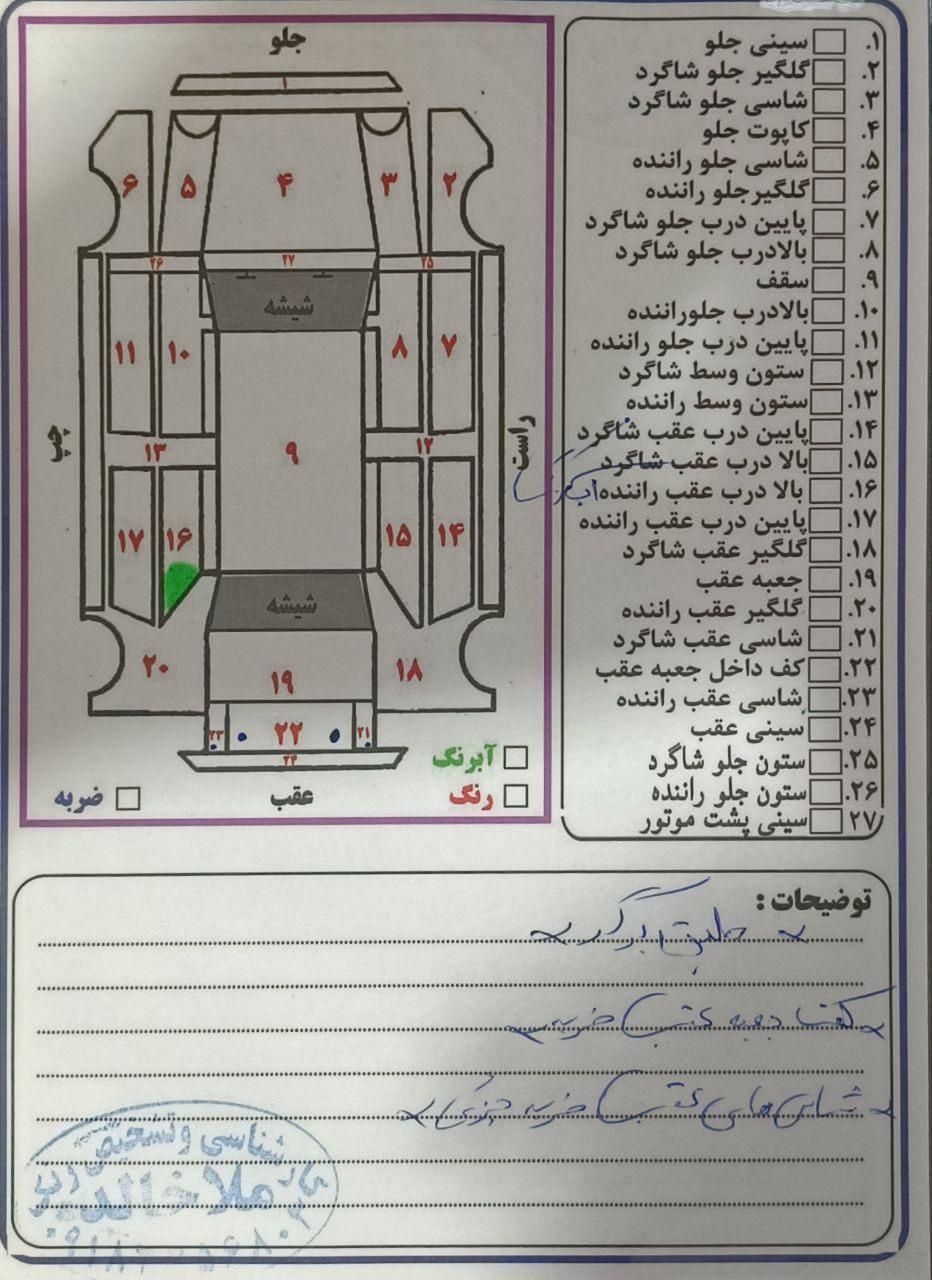 جلو
۱
۲
۳
۴
۵
۶
۲۵
۲۷
۲۶
شیشه
۷
۸
۱۰
۱۱
راست
۹
چپ
۱۲
۱۳
۱۴
۱۵
۱۶
۱۷
شیشه
۱۸
۱۹
۲۰
۲۱
۲۲
۲۳
۲۴
آبرنگ
رنگ
عقب
ضربه
۱. سینی جلو
۲. گلگیر جلو شاگرد
۳. شاسی جلو شاگرد
۴. کاپوت جلو
۵. شاسی جلو راننده
۶. گلگیرجلو راننده
۷. پایین درب جلو شاگرد
۸. بالادرب جلو شاگرد
۹. سقف
۱۰. بالادرب جلوراننده
۱۱. پایین درب جلو راننده
۱۲. ستون وسط شاگرد
۱۳. ستون وسط راننده
۱۴. پایین درب عقب شاگرد
۱۵. بالا درب عقب شاگرد
۱۶. بالا درب عقب راننده
۱۷. پایین درب عقب راننده
۱۸. گلگیر عقب شاگرد
۱۹. جعبه عقب
۲۰. گلگیر عقب راننده
۲۱. شاسی عقب شاگرد
۲۲. کف داخل جعبه عقب
۲۳. شاسی عقب راننده
۲۴. سینی عقب
۲۵. ستون جلو شاگرد
۲۶. ستون جلو راننده
۲۷. سینی پشت موتور
توضیحات :
طبق برگه
کف جعبه عقب ضربه
شاسی های عقب ضربه جزئی
کارشناسی و تشخیص رنگ
ملا خالد